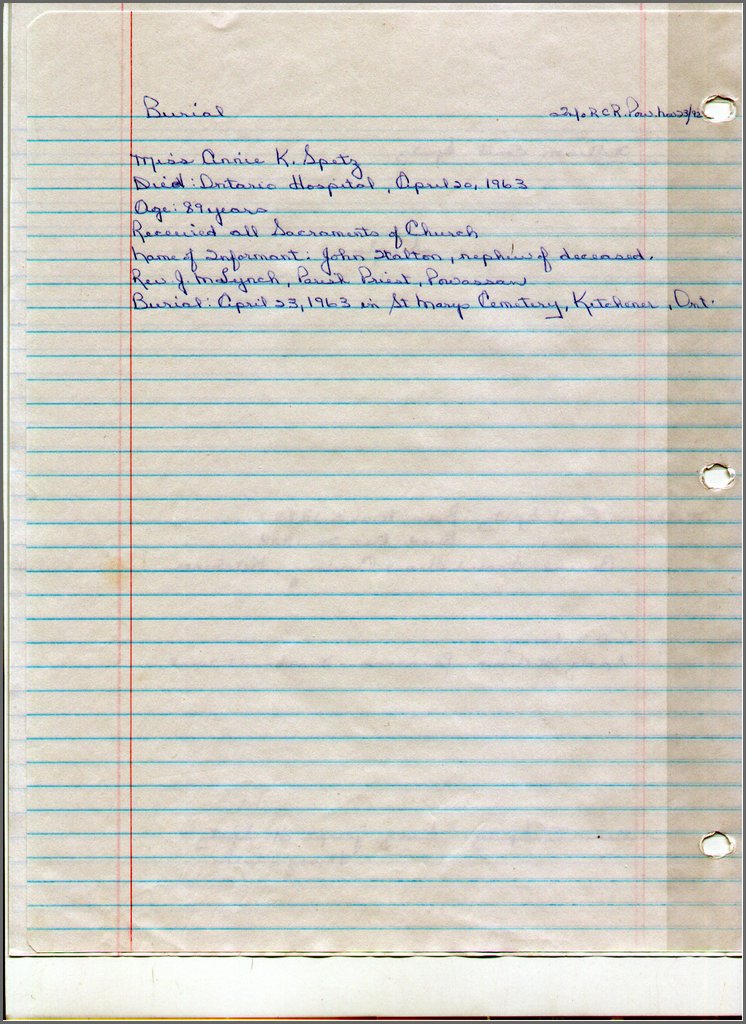 Burial Info R.C.R. Pow. Nov 23/92
Miss Annie K. Spetz
Died: Ontario Hospital, April 20, 1963
Age: 89 years
Received all Sacraments of Church
Name of Informant: John Stalton, nephew of deceased.
Rev J. McLynch, Parish Priest, Powassan
Burial: April 23, 1963 in St Marys Cemetery, Kitchener, Ont.